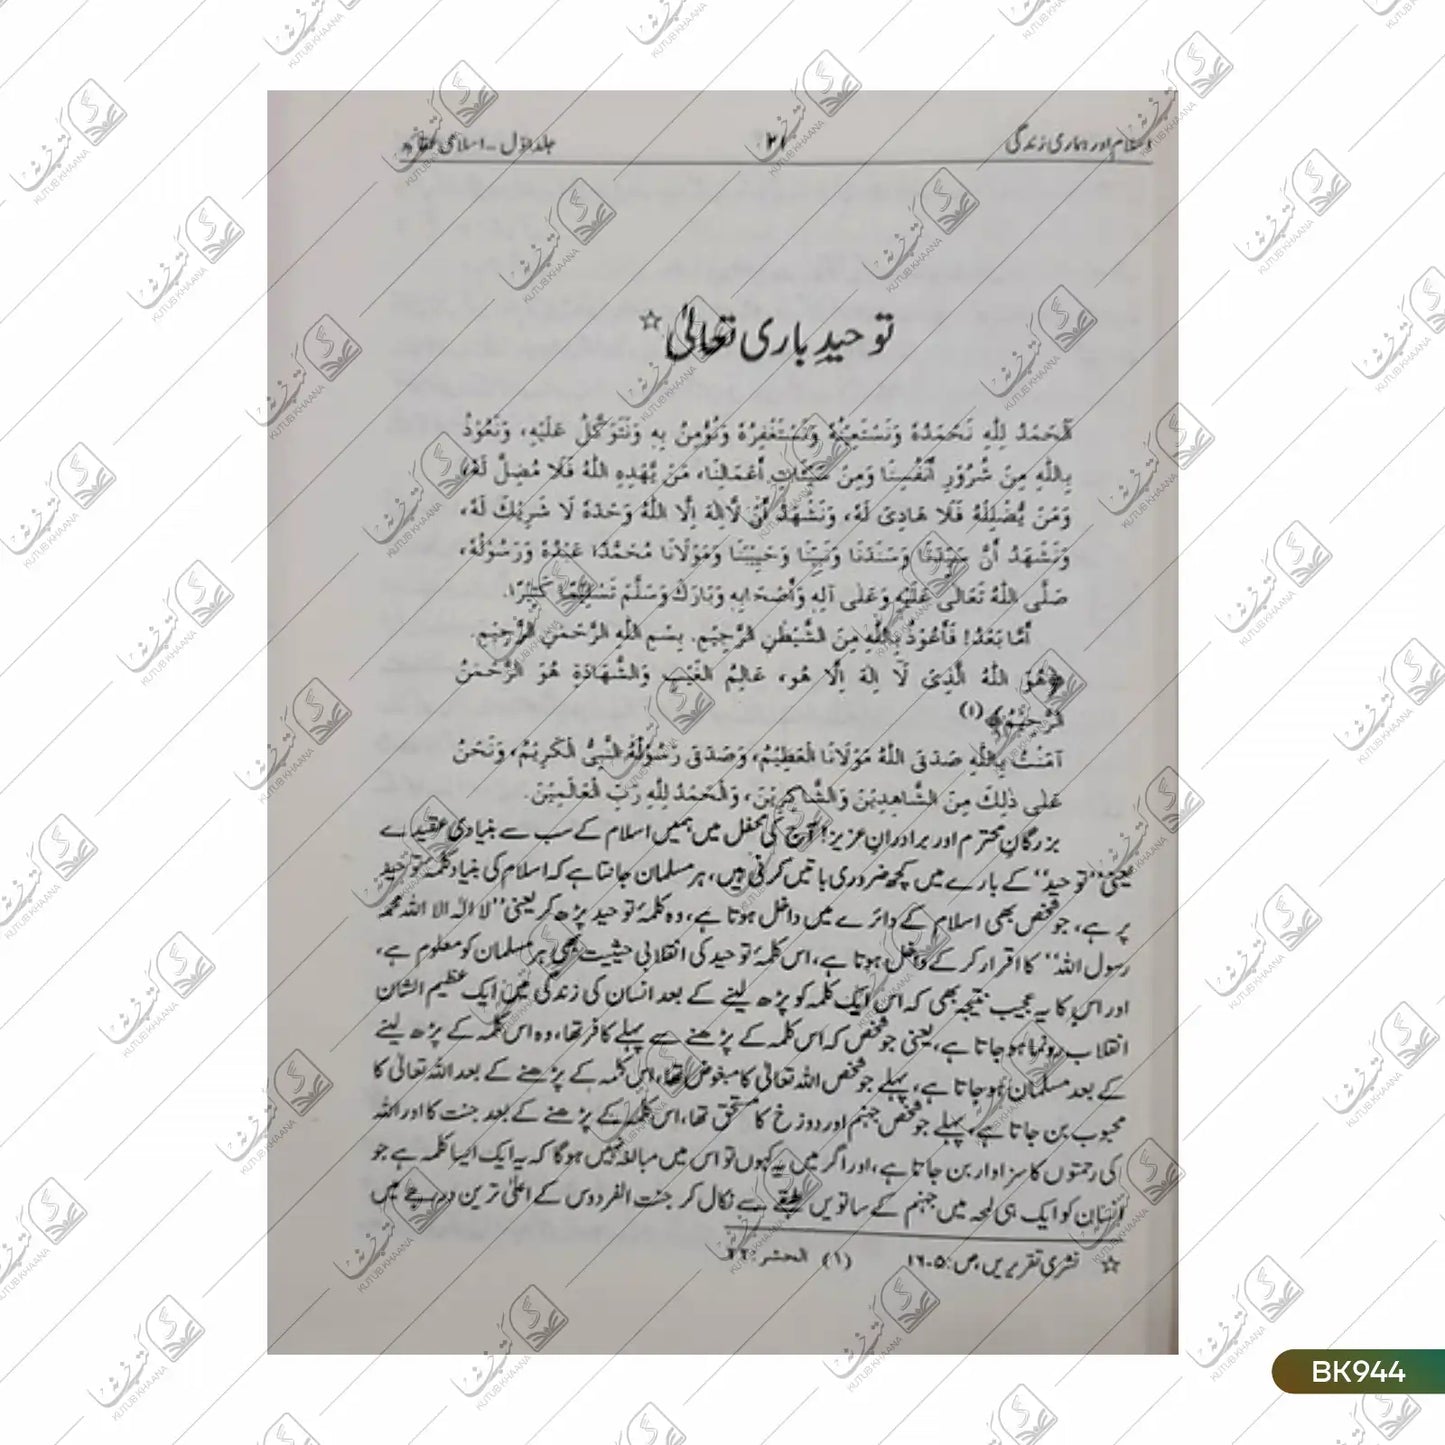 اسلام اور ہماری زندگی
۲۱
جلد اوّل - اسلامی عقائد
توحیدِ باری تعالیٰ ☆
اَلْحَمْدُ لِلّٰهِ نَحْمَدُهٗ وَنَسْتَعِيْنُهٗ وَنَسْتَغْفِرُهٗ وَنُؤْمِنُ بِهٖ وَنَتَوَكَّلُ عَلَيْهِ، وَنَعُوْذُ
بِاللّٰهِ مِنْ شُرُوْرِ أَنْفُسِنَا وَمِنْ سَيِّئَاتِ أَعْمَالِنَا، مَنْ يَّهْدِهِ اللّٰهُ فَلَا مُضِلَّ لَهٗ،
وَمَنْ يُّضْلِلْهُ فَلَا هَادِيَ لَهٗ، وَنَشْهَدُ أَنْ لَّا إِلٰهَ إِلَّا اللّٰهُ وَحْدَهٗ لَا شَرِيْكَ لَهٗ،
وَنَشْهَدُ أَنَّ سَيِّدَنَا وَسَنَدَنَا وَنَبِيَّنَا وَحَبِيْبَنَا وَمَوْلَانَا مُحَمَّدًا عَبْدُهٗ وَرَسُوْلُهٗ،
صَلَّى اللّٰهُ تَعَالٰى عَلَيْهِ وَعَلٰى آلِهٖ وَأَصْحَابِهٖ وَبَارَكَ وَسَلَّمَ تَسْلِيْمًا كَثِيْرًا.
أَمَّا بَعْدُ! فَأَعُوْذُ بِاللّٰهِ مِنَ الشَّيْطٰنِ الرَّجِيْمِ. بِسْمِ اللّٰهِ الرَّحْمٰنِ الرَّحِيْمِ.
﴿هُوَ اللّٰهُ الَّذِيْ لَا إِلٰهَ إِلَّا هُوَ، عَالِمُ الْغَيْبِ وَالشَّهَادَةِ هُوَ الرَّحْمٰنُ
الرَّحِيْمُ﴾(۱)
آمَنْتُ بِاللّٰهِ صَدَقَ اللّٰهُ مَوْلَانَا الْعَظِيْمُ، وَصَدَقَ رَسُوْلُهُ النَّبِيُّ الْكَرِيْمُ، وَنَحْنُ
عَلٰى ذٰلِكَ مِنَ الشَّاهِدِيْنَ وَالشَّاكِرِيْنَ، وَالْحَمْدُ لِلّٰهِ رَبِّ الْعَالَمِيْنَ.
بزرگانِ محترم اور برادرانِ عزیز! آج کی محفل میں ہمیں اسلام کے سب سے بنیادی عقیدے
یعنی ’’توحید‘‘ کے بارے میں کچھ ضروری باتیں کرنی ہیں، ہر مسلمان جانتا ہے کہ اسلام کی بنیاد کلمۂ توحید
پر ہے، جو شخص بھی اسلام کے دائرے میں داخل ہوتا ہے، وہ کلمۂ توحید پڑھ کر یعنی ’’لا الٰہ الا اللہ محمد
رسول اللہ‘‘ کا اقرار کر کے داخل ہوتا ہے، اس کلمۂ توحید کی انقلابی حیثیت بھی ہر مسلمان کو معلوم ہے،
اور اس کا یہ عجیب نتیجہ بھی کہ اس ایک کلمہ کو پڑھ لینے کے بعد انسان کی زندگی میں ایک عظیم الشان
انقلاب رونما ہو جاتا ہے، یعنی جو شخص کہ اس کلمہ کے پڑھنے سے پہلے کافر تھا، وہ اس کلمہ کے پڑھ لینے
کے بعد مسلمان ہو جاتا ہے، پہلے جو شخص اللہ تعالیٰ کا مبغوض تھا، اس کلمہ کے پڑھنے کے بعد اللہ تعالیٰ کا
محبوب بن جاتا ہے، پہلے جو شخص جہنم اور دوزخ کا مستحق تھا، اس کلمے کے پڑھنے کے بعد جنت کا اور اللہ
کی رحمتوں کا سزاوار بن جاتا ہے، اور اگر میں یہ کہوں تو اس میں مبالغہ نہیں ہوگا کہ یہ ایک ایسا کلمہ ہے جو
انسان کو ایک ہی لمحہ میں جہنم کے ساتویں طبقے سے نکال کر جنت الفردوس کے اعلیٰ ترین درجے میں
☆ نشری تقریریں، ص:۵-۱۶ (۱) الحشر:۲۲
BK944
کتب خانہ
KUTUB KHAANA